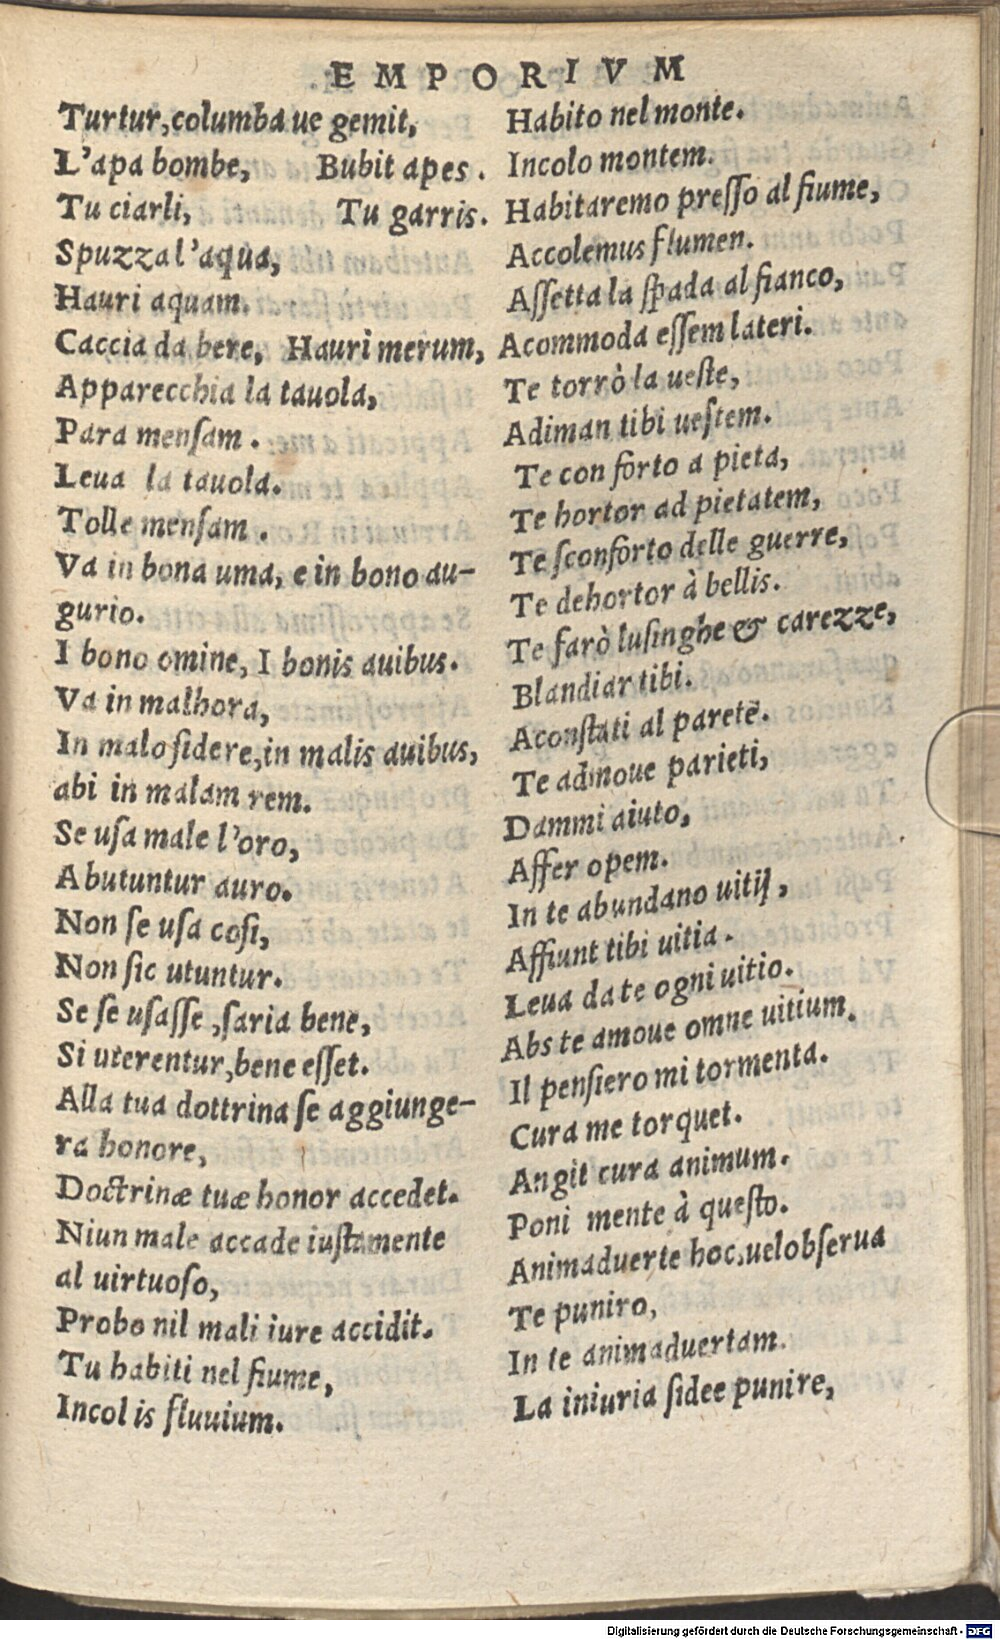 EMPORIVM
Turtur,columba ue gemit,
L'apa bombe, Bubit apes.
Tu ciarli, Tu garris.
Spuzza l'aqua,
Hauri aquam.
Caccia da bere, Hauri merum,
Apparecchia la tauola,
Para menſam.
Leua la tauola.
Tolle menſam.
Va in bona uma, e in bono au-
gurio.
I bono omine, I bonis auibus.
Va in malhora,
In malo ſidere,in malis auibus,
abi in malam rem.
Se uſa male l'oro,
Abutuntur auro.
Non ſe uſa coſi,
Non ſic utuntur.
Se ſe uſaſſe,ſaria bene,
Si uterentur,bene eſſet.
Alla tua dottrina ſe aggiunge-
ra honore,
Doctrinæ tuæ honor accedet.
Niun male accade iuſtamente
al uirtuoſo,
Probo nil mali iure accidit.
Tu habiti nel fiume,
Incolis fluuium.
Habito nel monte.
Incolo montem.
Habitaremo preſſo al fiume,
Accolemus flumen.
Aſſetta la ſpada al fianco,
Acommoda eſſem lateri.
Te torrò la ueſte,
Adiman tibi ueſtem.
Te conforto a pieta,
Te hortor ad pietatem,
Te ſconforto delle guerre,
Te dehortor à bellis.
Te farò luſinghe & carezze,
Blandiar tibi.
Aconſtati al parete.
Te admoue parieti,
Dammi aiuto,
Affer opem.
In te abundano uitij,
Affiunt tibi uitia.
Leua da te ogni uitio.
Abs te amoue omne uitium.
Il penſiero mi tormenta.
Cura me torquet.
Angit cura animum.
Poni mente à queſto.
Animaduerte hoc,uel obſerua
Te puniro,
In te animaduertam.
La iniuria ſi dee punire,
Digitalisierung gefördert durch die Deutsche Forschungsgemeinschaft - DFG